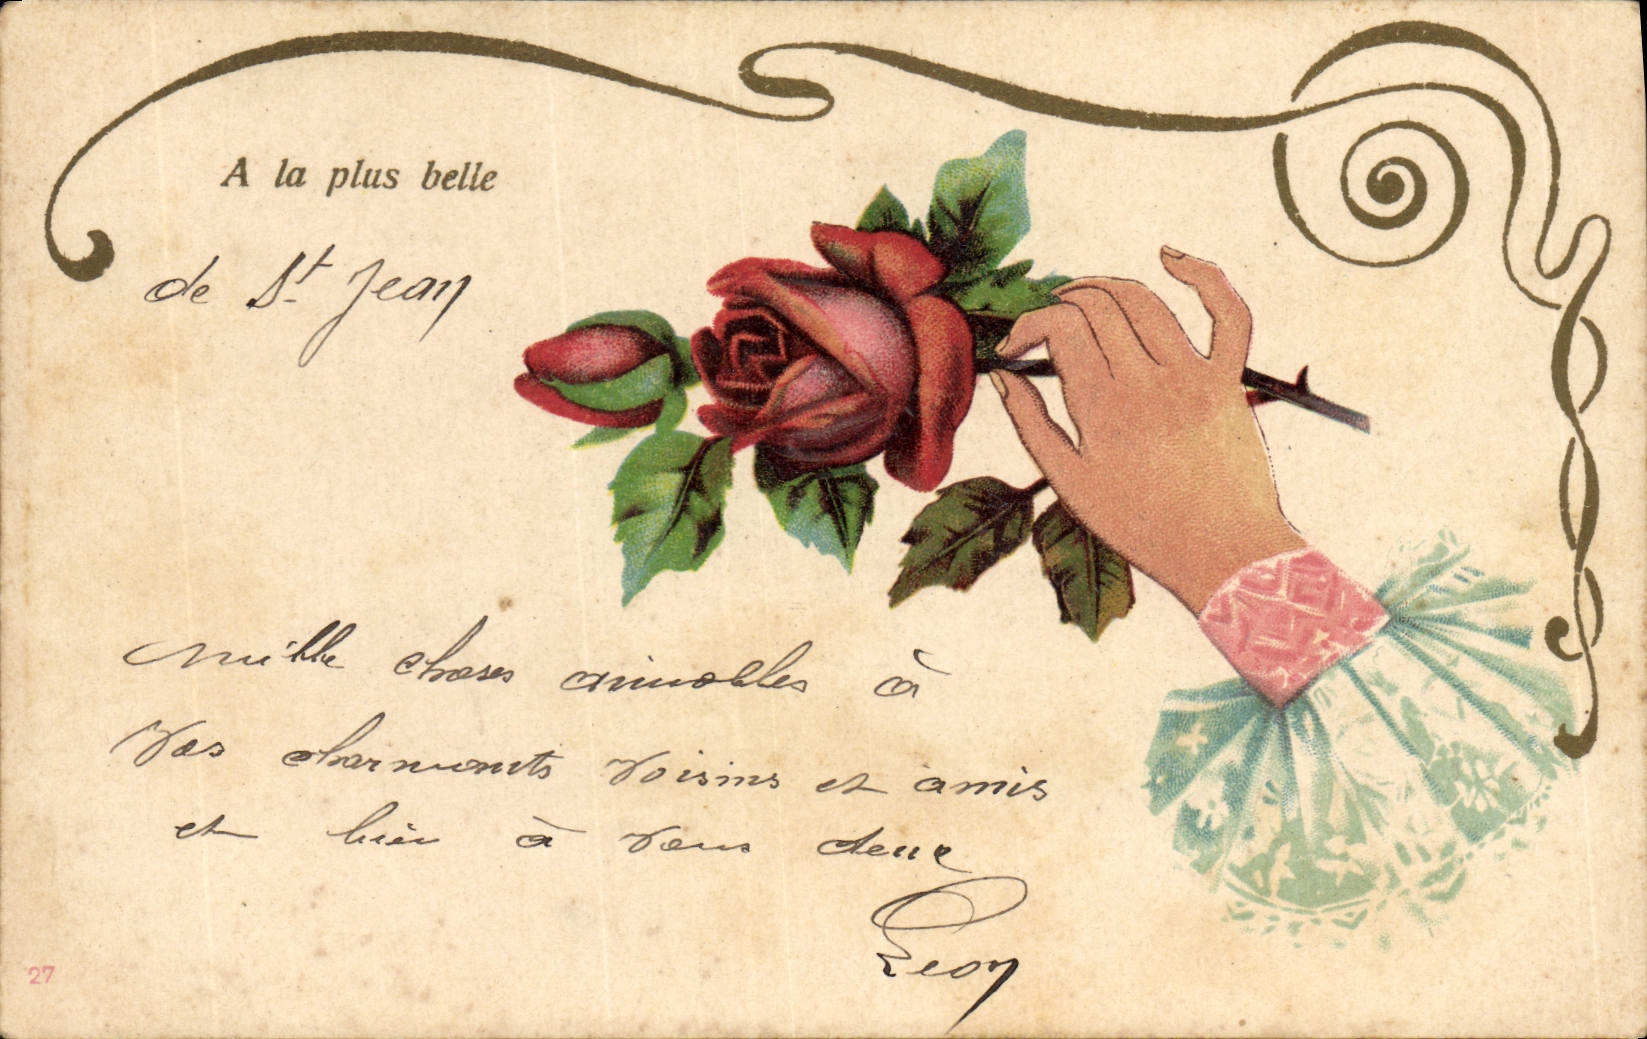 A la plus belle
de St Jean
Mille choses aimables à
vos charmants voisins et amis
et bien à vous deux
Leon
27